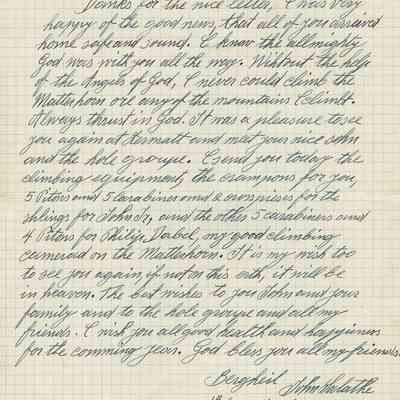 Danks for the nice letter, I was very
happy of the good news, that all of you arrived
home safe and sound. I know the allmighty
God was with you all the way. Without the help
of the Angels of God, I never could climb the
Matterhorn ore any of the mountains I climbt.
Always thrust in God. It was a pleasure to see
you again at Zermatt and meet your nice sohn
and the hole groupe. I send you today the
climbing equipment, the crampons for you,
5 Pitons and 5 Carabiner and
shlings for John Jr, and the other 5 carabiners and
4 Pitons for Philip Dabel, my good climbing
camerad on the Matterhorn. It is my wish too
to see you again, if not on this eath, it will be
in heaven. The best wishes to you John and your
family and to the hole groupe and all my
friends. I wish you all good health and happyness
for the comming jears. God bless you all my friends.
Bergheil John Salathe